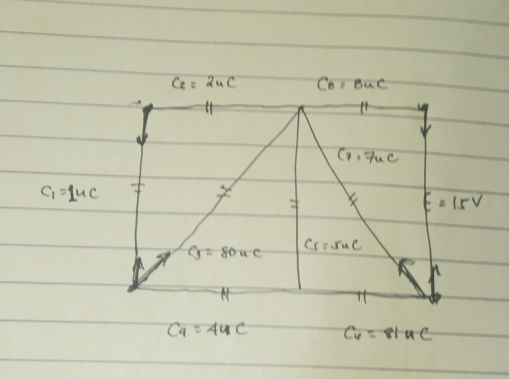 C2 = 2uC
C8 = 8uC
C7 = 7uC
C1 = 1uC
E = 15V
C3 = 80uC
C5 = 5uC
C4 = 4uC
C6 = 81uC